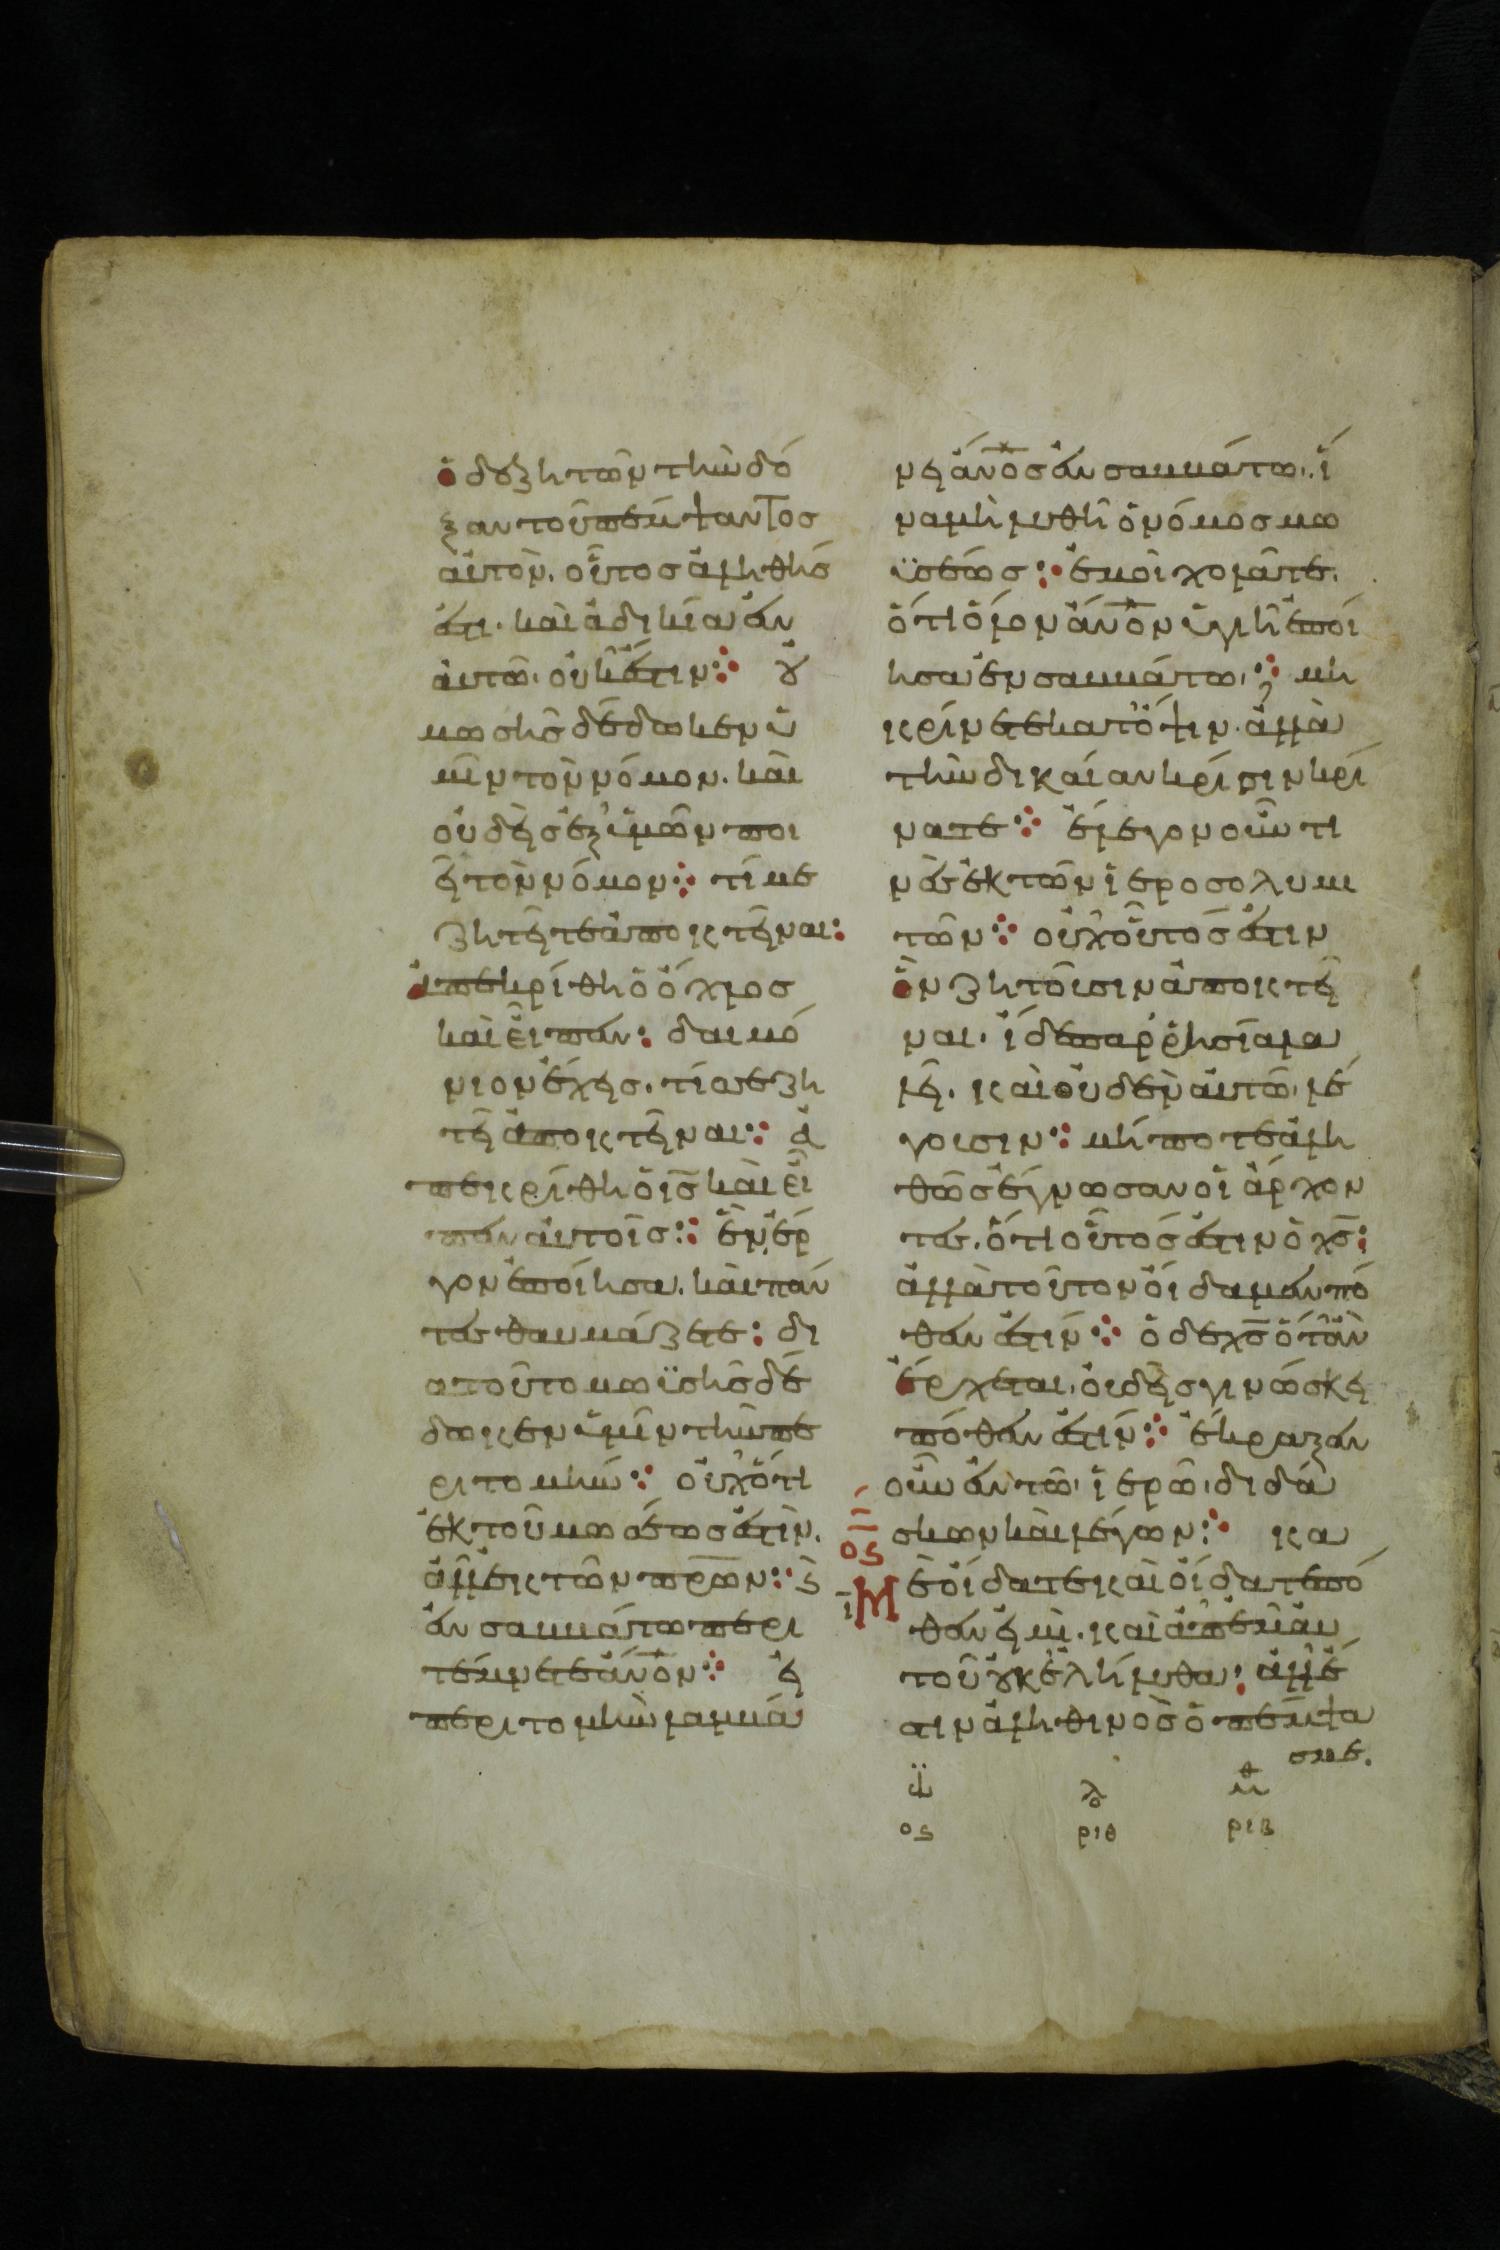 ὁ δὲ ζητῶν τὴν δό
ξαν τοῦ πέμψαντος
αὐτὸν. οὗτος ἀληθής
ἐστι. καὶ ἀδικία ἐν
αὐτῶ. οὐκ ἔστιν: οὐ
μωσῆς δέδωκεν ὑ
μῖν τὸν νόμον. καὶ
οὐδεὶς ἐξ ὑμῶν ποι
εῖ τὸν νόμον: τί με
ζητεῖτε ἀποκτεῖναι:
ἀπεκρίθη ὁ ὄχλος
καὶ εἶπεν: δαιμό
νιον ἔχεις. τίς σε ζη
τεῖ ἀποκτεῖναι: ἀ
πεκρίθη ὁ ις καὶ εἶ
πεν αὐτοῖς: ἓν ἔρ
γον ἐποίησα. καὶ πάν
τες θαυμάζετε: δι
α τοῦτο μωϋσῆς δέ
δωκεν ὑμῖν τὴν πε
ριτομήν: οὐχ ὅτι
ἐκ τοῦ μωσέως ἐστὶν.
ἀλλ' ἐκ τῶν πρων: κ
ἐν σαββάτω περι
τέμνετε ἀνον: εἰ
περιτομὴν λαμβά
νει ἀνος ἐν σαββάτω. ἵ
να μὴ λυθῆ ὁ νόμος μω
ϋσέως: ἐμοὶ χολᾶτε.
ὅτι ὅλον ἀνον ὑγιῆ ἐποί
ησα ἐν σαββάτω: μὴ
κρίνετε κατ' ὄψιν. ἀλλὰ
τὴν δικαίαν κρίσιν κρί
νατε: ἔλεγον οὖν τι
νὲς ἐκ τῶν ἱεροσολυμι
τῶν: οὐχ οὗτός ἐστιν
ὃν ζητοῦσιν ἀποκτεῖ
ναι. ἴδε παρρησία λα
λεῖ. καὶ οὐδὲν αὐτῶ λέ
γουσιν: μήποτε ἀλη
θῶς ἔγνωσαν οἱ ἄρχον
τες. ὅτι οὗτός ἐστιν ὁ χς:
ἀλλὰ τοῦτον οἴδαμεν πό
θεν ἐστίν: ὁ δὲ χς ὅταν
ἔρχεται. οὐδεὶς γινώσκει
πόθεν ἐστίν: ἔκραξεν
οὖν ἐν τῶ ἱερῶ διδά
σκων καὶ λέγων: κα
ος
ι
Μ
ὲ οἴδατε καὶ οἴδατε πό
θεν εἰμὶ. καὶ ἀπ' ἐμαυ
τοῦ οὐκ ἐλήλυθα: ἀλλ' ἔ
στιν ἀληθινὸς ὁ πέμψα
ς με.
λο
ος ριθ ριβ